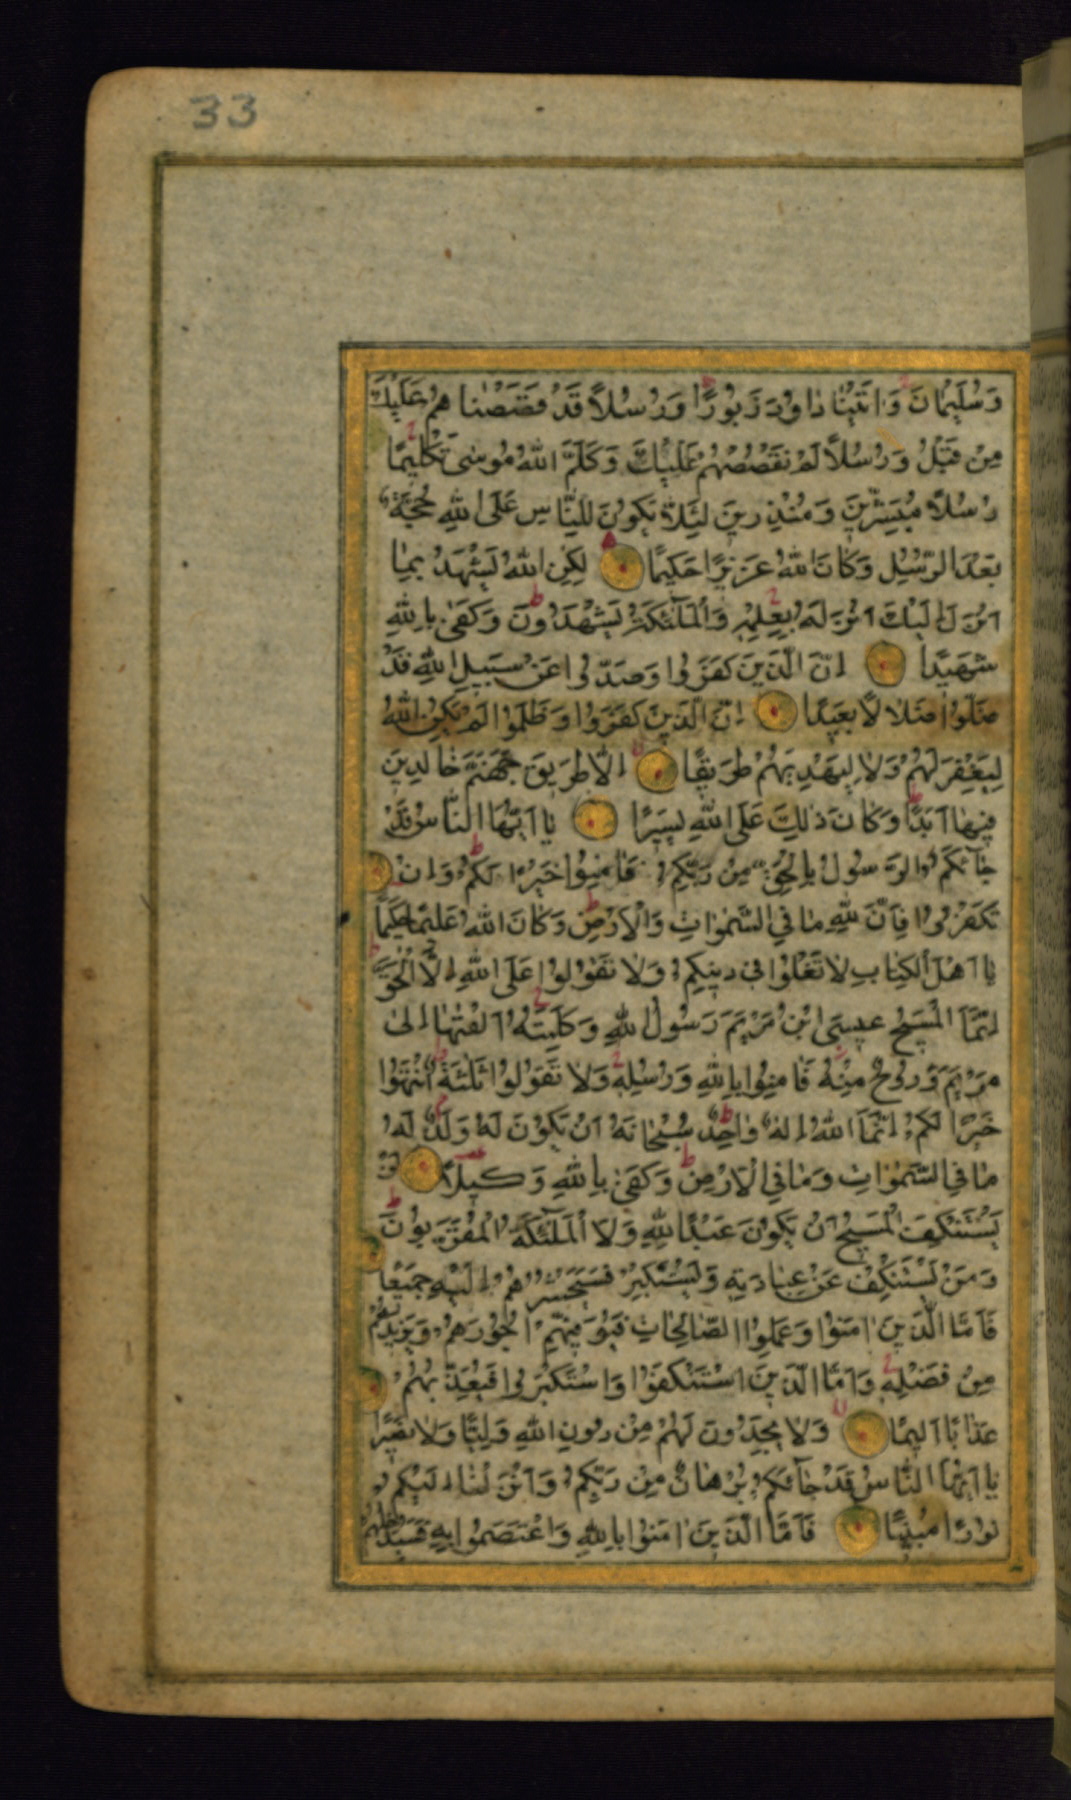 33
وَسُلَيْمَانَ وَاٰتَيْنَا دَاوُدَ زَبُورًا وَرُسُلًا قَدْ قَصَصْنَاهُمْ عَلَيْكَ
مِنْ قَبْلُ وَرُسُلًا لَمْ نَقْصُصْهُمْ عَلَيْكَ وَكَلَّمَ اللّٰهُ مُوسٰى تَكْلِيمًا
رُسُلًا مُبَشِّرِينَ وَمُنْذِرِينَ لِئَلَّا يَكُونَ لِلنَّاسِ عَلَى اللّٰهِ حُجَّةٌ
بَعْدَ الرُّسُلِ وَكَانَ اللّٰهُ عَزِيزًا حَكِيمًا لٰكِنِ اللّٰهُ يَشْهَدُ بِمَا
اَنْزَلَ اِلَيْكَ اَنْزَلَهُ بِعِلْمِهِ وَالْمَلٰٓئِكَةُ يَشْهَدُونَ وَكَفٰى بِاللّٰهِ
شَهِيدًا اِنَّ الَّذِينَ كَفَرُوا وَصَدُّوا عَنْ سَبِيلِ اللّٰهِ قَدْ
ضَلُّوا ضَلَالًا بَعِيدًا اِنَّ الَّذِينَ كَفَرُوا وَظَلَمُوا لَمْ يَكُنِ اللّٰهُ
لِيَغْفِرَ لَهُمْ وَلَا لِيَهْدِيَهُمْ طَرِيقًا اِلَّا طَرِيقَ جَهَنَّمَ خَالِدِينَ
فِيهَا اَبَدًا وَكَانَ ذٰلِكَ عَلَى اللّٰهِ يَسِيرًا يَا اَيُّهَا النَّاسُ قَدْ
جَآءَكُمُ الرَّسُولُ بِالْحَقِّ مِنْ رَبِّكُمْ فَاٰمِنُوا خَيْرًا لَكُمْ وَاِنْ
تَكْفُرُوا فَاِنَّ لِلّٰهِ مَا فِي السَّمٰوَاتِ وَالْاَرْضِ وَكَانَ اللّٰهُ عَلِيمًا حَكِيمًا
يَا اَهْلَ الْكِتَابِ لَا تَغْلُوا فِي دِينِكُمْ وَلَا تَقُولُوا عَلَى اللّٰهِ اِلَّا الْحَقَّ
اِنَّمَا الْمَسِيحُ عِيسَى ابْنُ مَرْيَمَ رَسُولُ اللّٰهِ وَكَلِمَتُهُ اَلْقٰيهَا اِلٰى
مَرْيَمَ وَرُوحٌ مِنْهُ فَاٰمِنُوا بِاللّٰهِ وَرُسُلِهِ وَلَا تَقُولُوا ثَلٰثَةٌ اِنْتَهُوا
خَيْرًا لَكُمْ اِنَّمَا اللّٰهُ اِلٰهٌ وَاحِدٌ سُبْحَانَهُ اَنْ يَكُونَ لَهُ وَلَدٌ لَهُ
مَا فِي السَّمٰوَاتِ وَمَا فِي الْاَرْضِ وَكَفٰى بِاللّٰهِ وَكِيلًا لَنْ
يَسْتَنْكِفَ الْمَسِيحُ اَنْ يَكُونَ عَبْدًا لِلّٰهِ وَلَا الْمَلٰٓئِكَةُ الْمُقَرَّبُونَ
وَمَنْ يَسْتَنْكِفْ عَنْ عِبَادَتِهِ وَيَسْتَكْبِرْ فَسَيَحْشُرُهُمْ اِلَيْهِ جَمِيعًا
فَاَمَّا الَّذِينَ اٰمَنُوا وَعَمِلُوا الصَّالِحَاتِ فَيُوَفِّيهِمْ اُجُورَهُمْ وَيَزِيدُهُمْ
مِنْ فَضْلِهِ وَاَمَّا الَّذِينَ اسْتَنْكَفُوا وَاسْتَكْبَرُوا فَيُعَذِّبُهُمْ
عَذَابًا اَلِيمًا وَلَا يَجِدُونَ لَهُمْ مِنْ دُونِ اللّٰهِ وَلِيًّا وَلَا نَصِيرًا
يَا اَيُّهَا النَّاسُ قَدْ جَآءَكُمْ بُرْهَانٌ مِنْ رَبِّكُمْ وَاَنْزَلْنَا اِلَيْكُمْ
نُورًا مُبِينًا فَاَمَّا الَّذِينَ اٰمَنُوا بِاللّٰهِ وَاعْتَصَمُوا بِهِ فَسَيُدْخِلُهُمْ